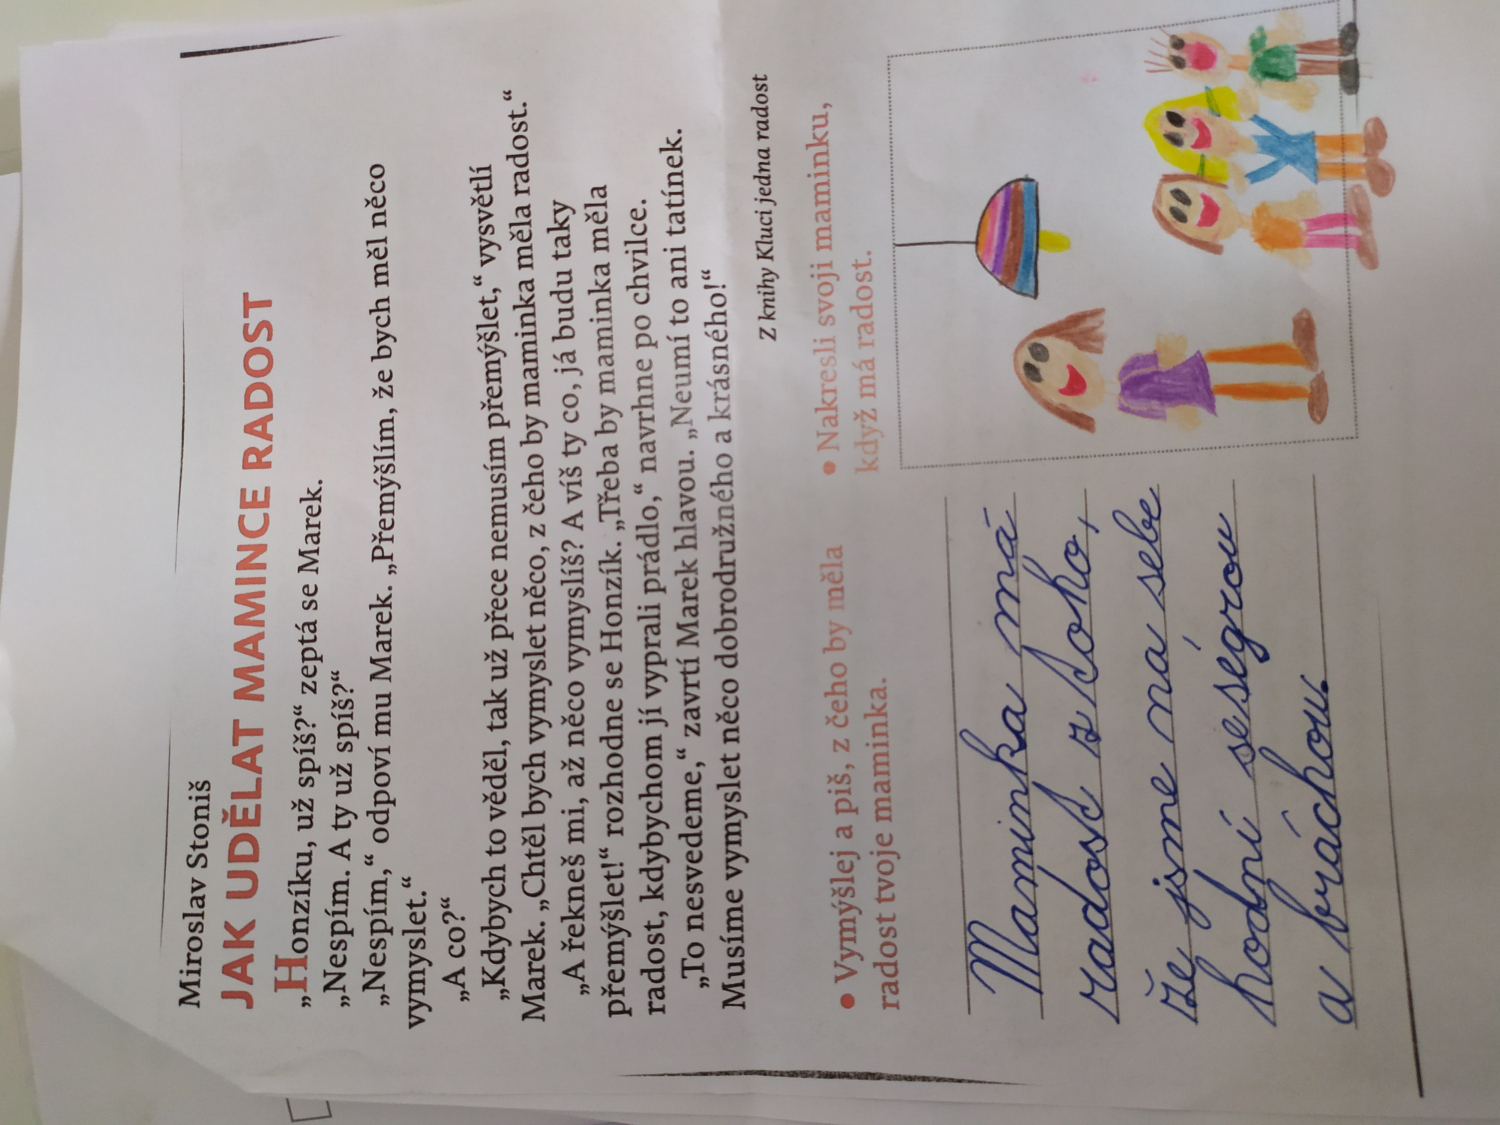 Miroslav Stoniš
JAK UDĚLAT MAMINCE RADOST
„Honzíku, už spíš?“ zeptá se Marek.
„Nespím. A ty už spíš?“
„Nespím,“ odpoví mu Marek. „Přemýšlím, že bych měl něco
vymyslet.“
„A co?“
„Kdybych to věděl, tak už přece nemusím přemýšlet,“ vysvětlí
Marek. „Chtěl bych vymyslet něco, z čeho by maminka měla radost.“
„A řekneš mi, až něco vymyslíš? A víš ty co, já budu taky
přemýšlet!“ rozhodne se Honzík. „Třeba by maminka měla
radost, kdybychom jí vyprali prádlo,“ navrhne po chvilce.
„To nesvedeme,“ zavrtí Marek hlavou. „Neumí to ani tatínek.
Musíme vymyslet něco dobrodružného a krásného!“
Z knihy Kluci jedna radost
• Vymýšlej a piš, z čeho by měla
radost tvoje maminka.
Maminka má
radost z toho,
že jsme na sebe
hodní se ségrou
a bráchou.
• Nakresli svoji maminku,
když má radost.